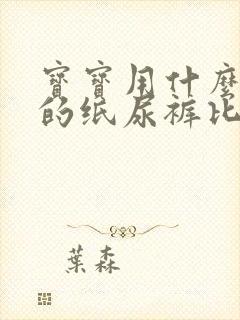 寶寶用什麼
的纸尿裤比
葉森